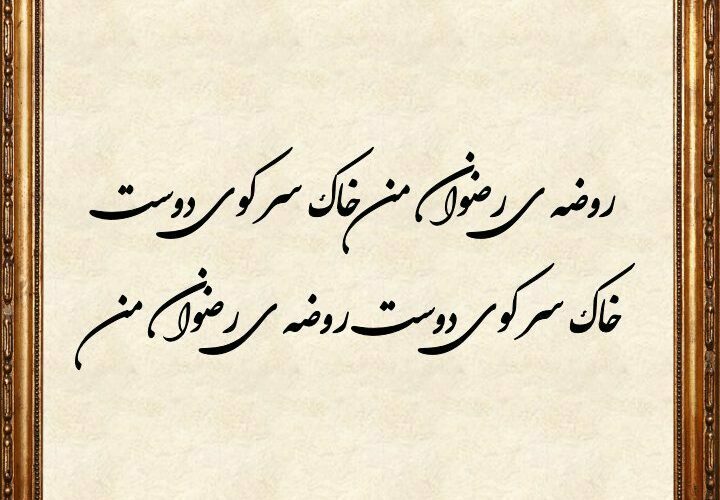 روضه ی رضوان من خاک سر کوی دوست
خاک سر کوی دوست روضه ی رضوان من